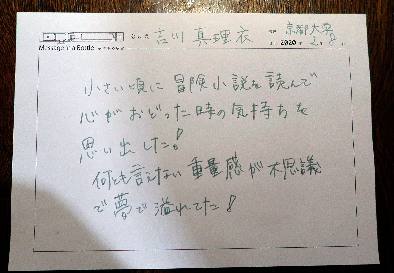 Message in a Bottle
吉川 真理衣
京都大学
2020 2 8
小さい頃に冒険小説を読んで
心がおどった時の気持ちを
思い出した!
何とも言えない重量感が不思議
で夢で溢れてた!